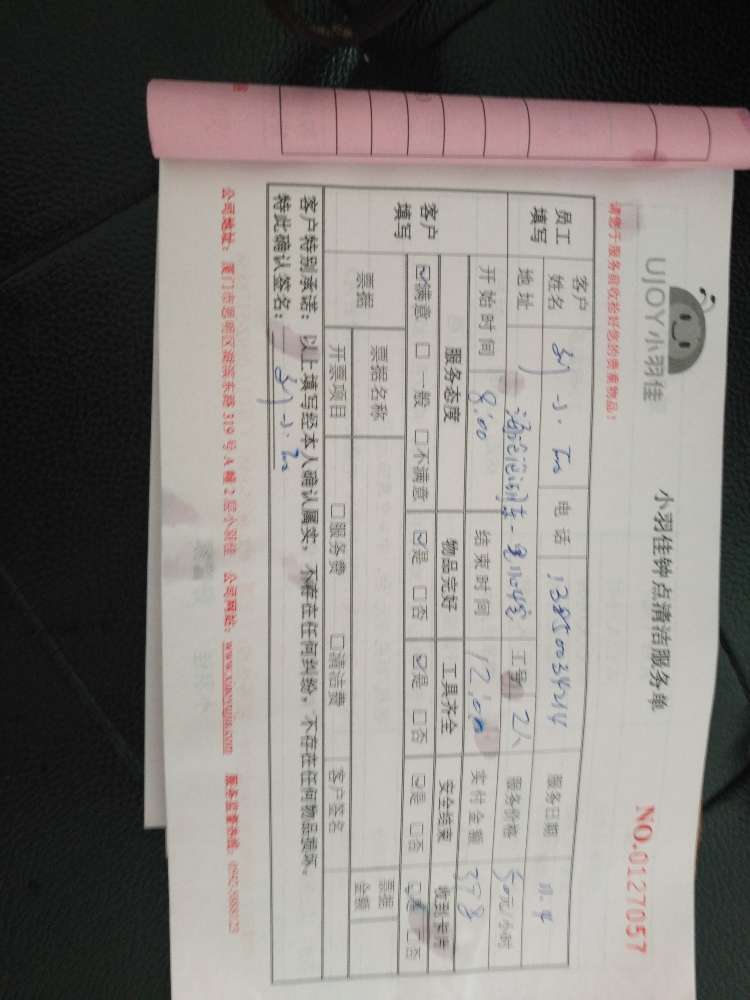 UJOY小羽佳
小羽佳钟点清洁服务单
NO.0127057
请您于服务前收拾好您的贵重物品!
员工填写 客户姓名 电话 服务日期
地址 工号 2人 服务价格 50元/小时
开始时间 8:00 结束时间 12:00 实付金额 358
客户填写 服务态度 物品完好 工具齐全 安全结束 收到卡片
☑满意 □一般 □不满意 ☑是 □否 ☑是 □否 ☑是 □否 ☑是 □否
票据 票据名称 客户签名 票据金额
开票项目 □服务费 □清洁费
客户特别承诺:以上填写经本人确认属实,不存在任何纠纷,不存在任何物品损坏。
特此确认签名:
公司地址:厦门市思明区湖滨东路319号A幢2层小羽佳 公司网站:www.xiaoyujia.com 服务监督热线:0592-5888123